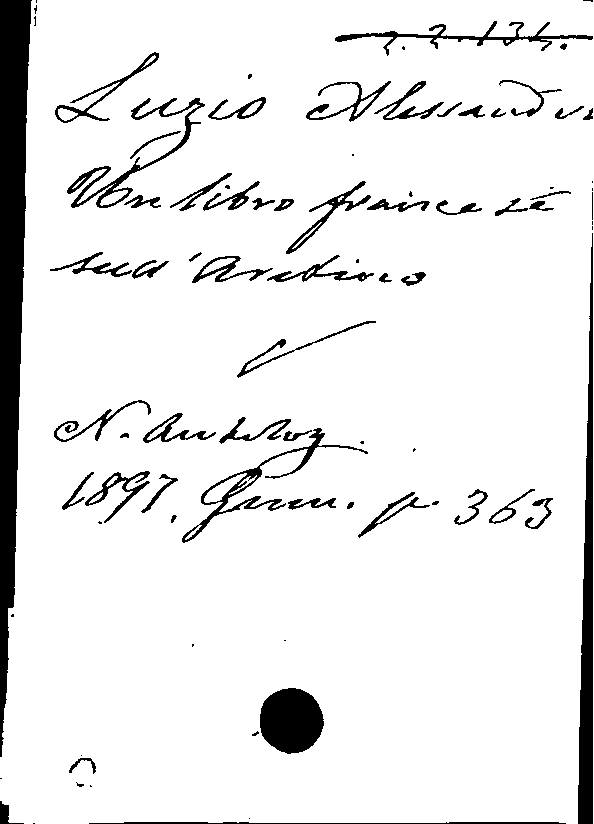 2.2.134.
Luzio Alessandro
Un libro francese
sull'Aretino
N. Antolog.
1897. Genn. p. 363